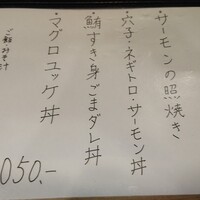 ・サーモンの照焼き
・穴子・ネギトロ・サーモン丼
・鮪すき身ごまダレ丼
・マグロユッケ丼
050.-